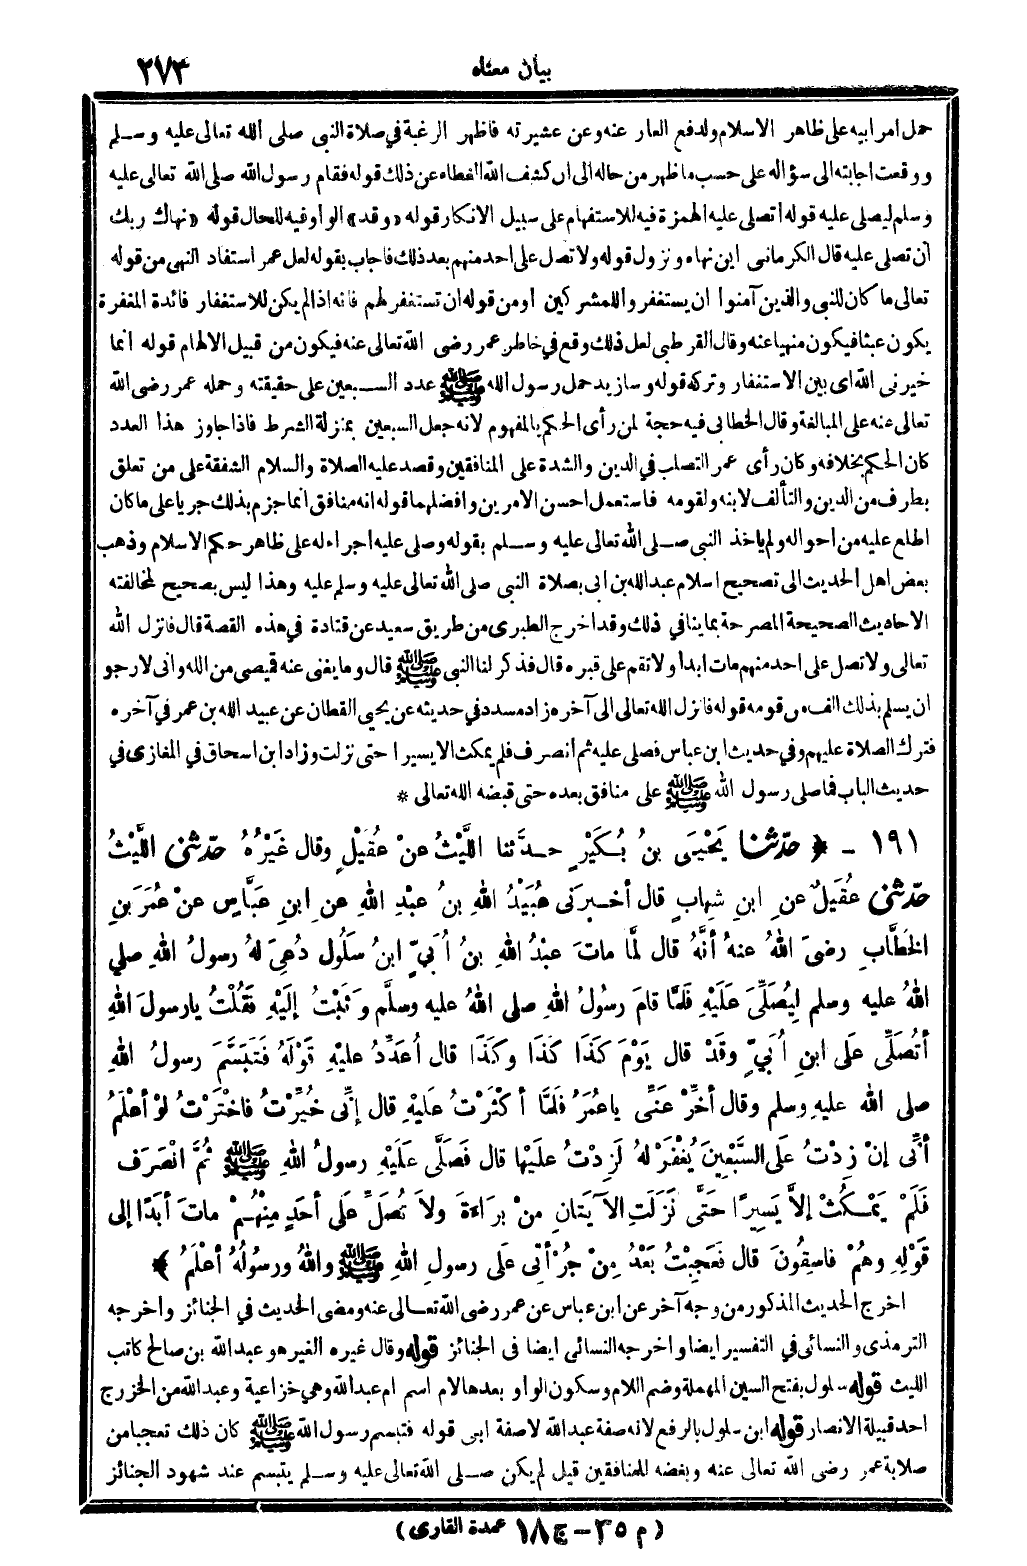 بيان معناه ٢٧٣
حمل امر ابيه على ظاهر الاسلام ولدفع العار عنه وعن عشيرته فاظهر الرغبة في صلاة النبى صلى الله تعالى عليه وسلم
ووقعت اجابته الى سؤاله على حسب ما ظهر من حاله الى ان كشف الله الغطاء عن ذلك قوله فقام رسول الله صلى الله تعالى عليه
وسلم ليصلى عليه قوله أتصلى عليه الهمزة فيه للاستفهام على سبيل الانكار قوله «وقد» الواو فيه للحال قوله «نهاك ربك
أن تصلى عليه قال الكرمانى اين نهاه ونزول قوله ولا تصل على احد منهم بعد ذلك فاجاب بقوله لعل عمر استفاد النهى من قوله
تعالى ما كان للنبى والذين آمنوا ان يستغفروا للمشركين أو من قوله ان تستغفر لهم فانه اذا لم يكن للاستغفار فائدة المغفرة
يكون عبثا فيكون منهيا عنه وقال القرطبى لعل ذلك وقع في خاطر عمر رضى الله تعالى عنه فيكون من قبيل الالهام قوله انما
خيرنى الله اى بين الاستغفار وتركه قوله وسازيد حمل رسول الله ﷺ عدد السبعين على حقيقته وحمله عمر رضى الله
تعالى عنه على المبالغة وقال الخطابى فيه حجة لمن رأى الحكم بالمفهوم لانه جعل السبعين بمنزلة الشرط فاذا جاوز هذا العدد
كان الحكم بخلافه وكان رأى عمر التصلب في الدين والشدة على المنافقين وقصد عليه الصلاة والسلام الشفقة على من تعلق
بطرف من الدين والتألف لابنه ولقومه فاستعمل احسن الامرين وافضلهما قوله انه منافق انما جزم بذلك جريا على ما كان
اطلع عليه من احواله ولم ياخذ النبى صلى الله تعالى عليه وسلم بقوله وصلى عليه اجراء له على ظاهر حكم الاسلام وذهب
بعض اهل الحديث الى تصحيح اسلام عبد الله بن ابى بصلاة النبى صلى الله تعالى عليه وسلم عليه وهذا ليس بصحيح لمخالفته
الاحاديث الصحيحة المصرحة بما ينافي ذلك وقد اخرج الطبرى من طريق سعيد عن قتادة في هذه القصة قال فانزل الله
تعالى ولا تصل على احد منهم مات ابدا ولا تقم على قبره قال فذكر لنا النبى ﷺ قال وما يغنى عنه قميصى من الله وانى لارجو
ان يسلم بذلك الف من قومه قوله فانزل الله تعالى الى آخره زاد مسدد في حديثه عن يحيى القطان عن عبيد الله بن عمر في آخره
فترك الصلاة عليهم وفي حديث ابن عباس فصلى عليه ثم انصرف فلم يمكث الا يسيرا حتى نزلت وزاد ابن اسحاق في المغازى في
حديث الباب فما صلى رسول الله ﷺ على منافق بعده حتى قبضه الله تعالى *
١٩١ - ﴿ حدّثنا يَحْيَى بنُ بُكَيْرٍ حدثنا اللَّيْثُ عنْ عُقَيْلٍ وقال غَيْرُهُ حدّثني اللَّيْثُ
حدّثني عُقَيلٌ عنِ ابنِ شِهابٍ قال أخبرَنى عُبَيْدُ اللهِ بنُ عبْدِ اللهِ عنِ ابنِ عَبَّاسٍ عنْ عُمَرَ بنِ
الخَطَّابِ رضىَ اللهُ عنهُ أنَّهُ قال لمَّا ماتَ عبْدُ اللهِ بنُ أُبَيٍّ ابنُ سَلُول دُعِىَ لهُ رسولُ اللهِ صلي
اللهُ عليه وسلم لِيُصَلِّىَ عَلَيْهِ فَلَمَّا قامَ رسُولُ اللهِ صلى اللهُ عليه وسلَّم وَثَبْتُ إلَيْهِ فَقُلْتُ يارسولَ اللهِ
أتُصَلِّى عَلَى ابنِ أُبَيٍّ وقَدْ قال يَوْمَ كَذَا كَذَا وكَذَا قال أُعَدِّدُ عليْهِ قَوْلَهُ فَتَبَسَّمَ رسولُ اللهِ
صلى الله عليهِ وسلم وقال أخِّرْ عنِّى ياعُمَرُ فَلمَّا أكْثَرْتُ عليْهِ قال إنِّى خُيِّرْتُ فاخْتَرْتُ لوْ أعْلَمُ
أنِّى إنْ زِدْتُ علَى السَّبْعِينَ يُغْفَرْ لهُ لَزِدْتُ علَيْها قال فَصَلَّى عَلَيْهِ رسولُ اللهِ ﷺ ثُمَّ انْصَرَفَ
فَلَمْ يَمْكُثْ إلاَّ يَسِيرًا حتَّى نَزَلَتِ الآيَتانِ مِنْ بَرَاءَةَ ولاَ تُصَلِّ عَلَى أحَدٍ مِنْهُمْ ماتَ أبَدًا إلى
قَوْلِهِ وهُمْ فاسِقُونَ قال فَعَجِبْتُ بَعْدُ مِنْ جُرْأتِى عَلَى رسولِ اللهِ ﷺ واللهُ ورسُولُهُ أعْلَمُ ﴾
اخرج الحديث المذكور من وجه آخر عن ابن عباس عن عمر رضى الله تعالى عنه ومضى الحديث في الجنائز واخرجه
الترمذى والنسائى في التفسير ايضا واخرجه النسائى ايضا فى الجنائز قوله وقال غيره الغير هو عبد الله بن صالح كاتب
الليث قوله سلول بفتح السين المهملة وضم اللام وسكون الواو بعدها لام اسم ام عبد الله وهي خزاعية وعبد الله من الخزرج
احد قبيلة الانصار قوله ابن سلول بالرفع لانه صفة عبد الله لا صفة ابى قوله فتبسم رسول الله ﷺ كان ذلك تعجبا من
صلابة عمر رضى الله تعالى عنه وبغضه للمنافقين قيل لم يكن صلى الله تعالى عليه وسلم يتبسم عند شهود الجنائز
( م ٣٥ - ج ١٨ عمدة القارى )